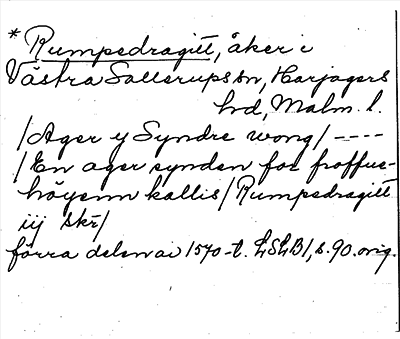 * Rumpedragitt, åker i
Västra Sallerups sn, Harjagers
hd, Malm. l.
/Ager y Syndre wong/ ----
/En ager synden for froffue-
höyenn kallis/Rumpedragitt
iij skr/
förra delen av 1570-t. LSLB1, s. 90. orig.